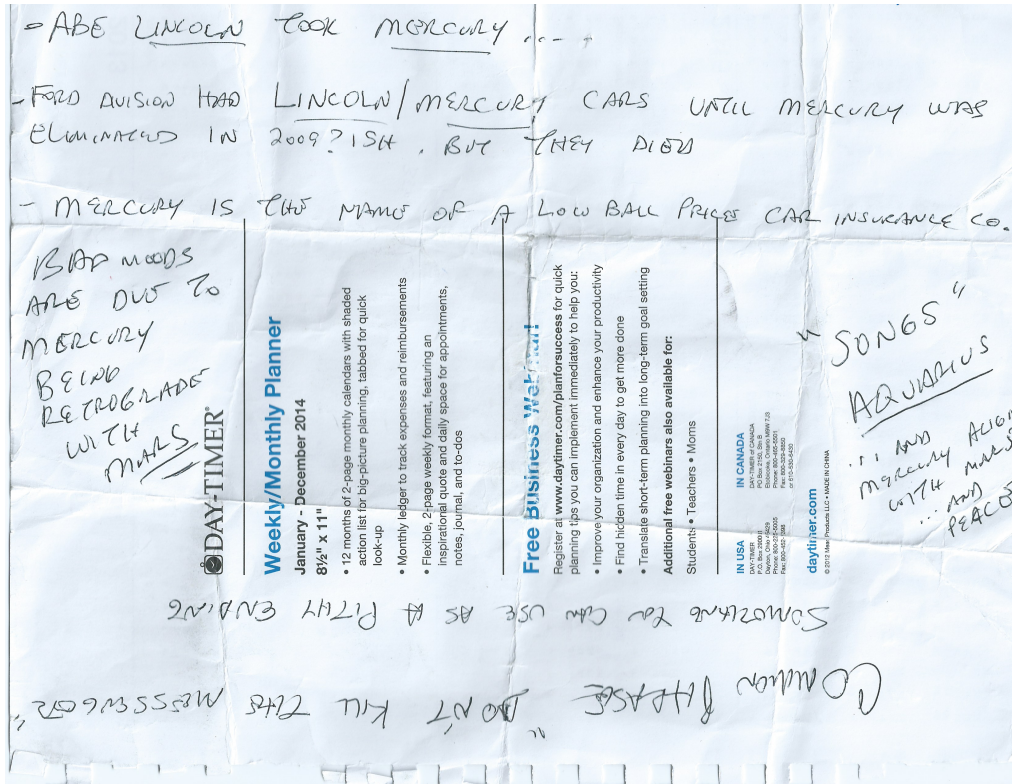 - ABE LINCOLN TOOK MERCURY .....
- FORD DIVISION HAD LINCOLN/MERCURY CARS UNTIL MERCURY WAS
ELIMINATED IN 2009?ISH . BUT THEY DIED
- MERCURY IS THE NAME OF A LOW BALL PRICES CAR INSURANCE CO.
BAD MOODS
ARE DUE TO
MERCURY
BEING
RETROGRADE
WITH
MARS
DAY-TIMER®
Weekly/Monthly Planner
January - December 2014
8½" x 11"
• 12 months of 2-page monthly calendars with shaded
action list for big-picture planning, tabbed for quick
look-up
• Monthly ledger to track expenses and reimbursements
• Flexible, 2-page weekly format, featuring an
inspirational quote and daily space for appointments,
notes, journal, and to-dos
Free Business Webinar!
Register at www.daytimer.com/planforsuccess for quick
planning tips you can implement immediately to help you:
• Improve your organization and enhance your productivity
• Find hidden time in every day to get more done
• Translate short-term planning into long-term goal setting
Additional free webinars also available for:
Students • Teachers • Moms
IN USA
DAY-TIMER
P.O. Box
Dayton, Ohio
Phone:
Fax:
IN CANADA
DAY-TIMER of CANADA
PO Box 2150, Stn B
Etobicoke, Ontario
Phone:
Fax:
daytimer.com
© 2012 Mead Products LLC • MADE IN CHINA
"SONGS"
AQUARIUS
... AND
MERCURY ALIGN
WITH MARS
... AND
PEACE
COMMON PHRASE "DON'T KILL THE MESSENGER"
SOMETHING YOU CAN USE AS A PITHY ENDING